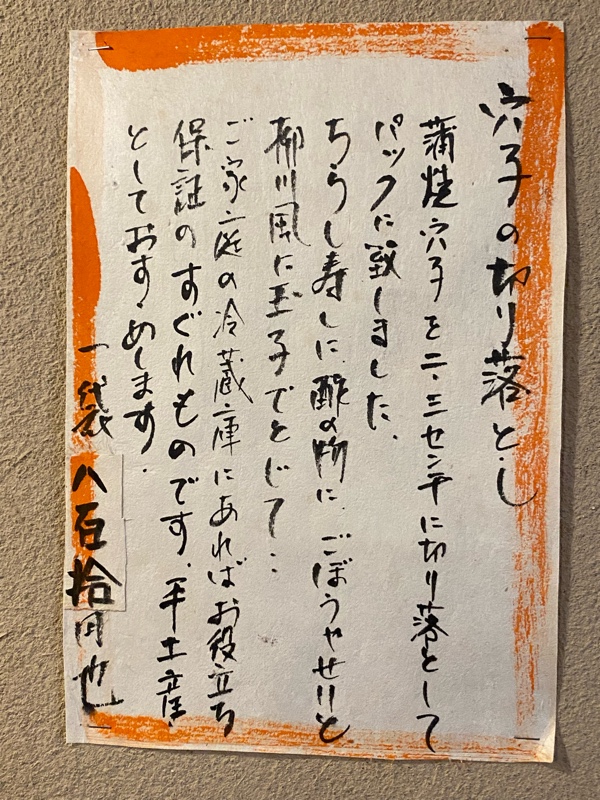 穴子の切り落とし
蒲焼穴子を二、三センチに切り落として
パックに致しました、
ちらし寿しに、酢の物に、ごぼうやせりと
柳川風に玉子でとじて…
ご家庭の冷蔵庫にあればお役立ち
保証のすぐれものです、手土産
としておすゝめします.
一袋 八百拾円也